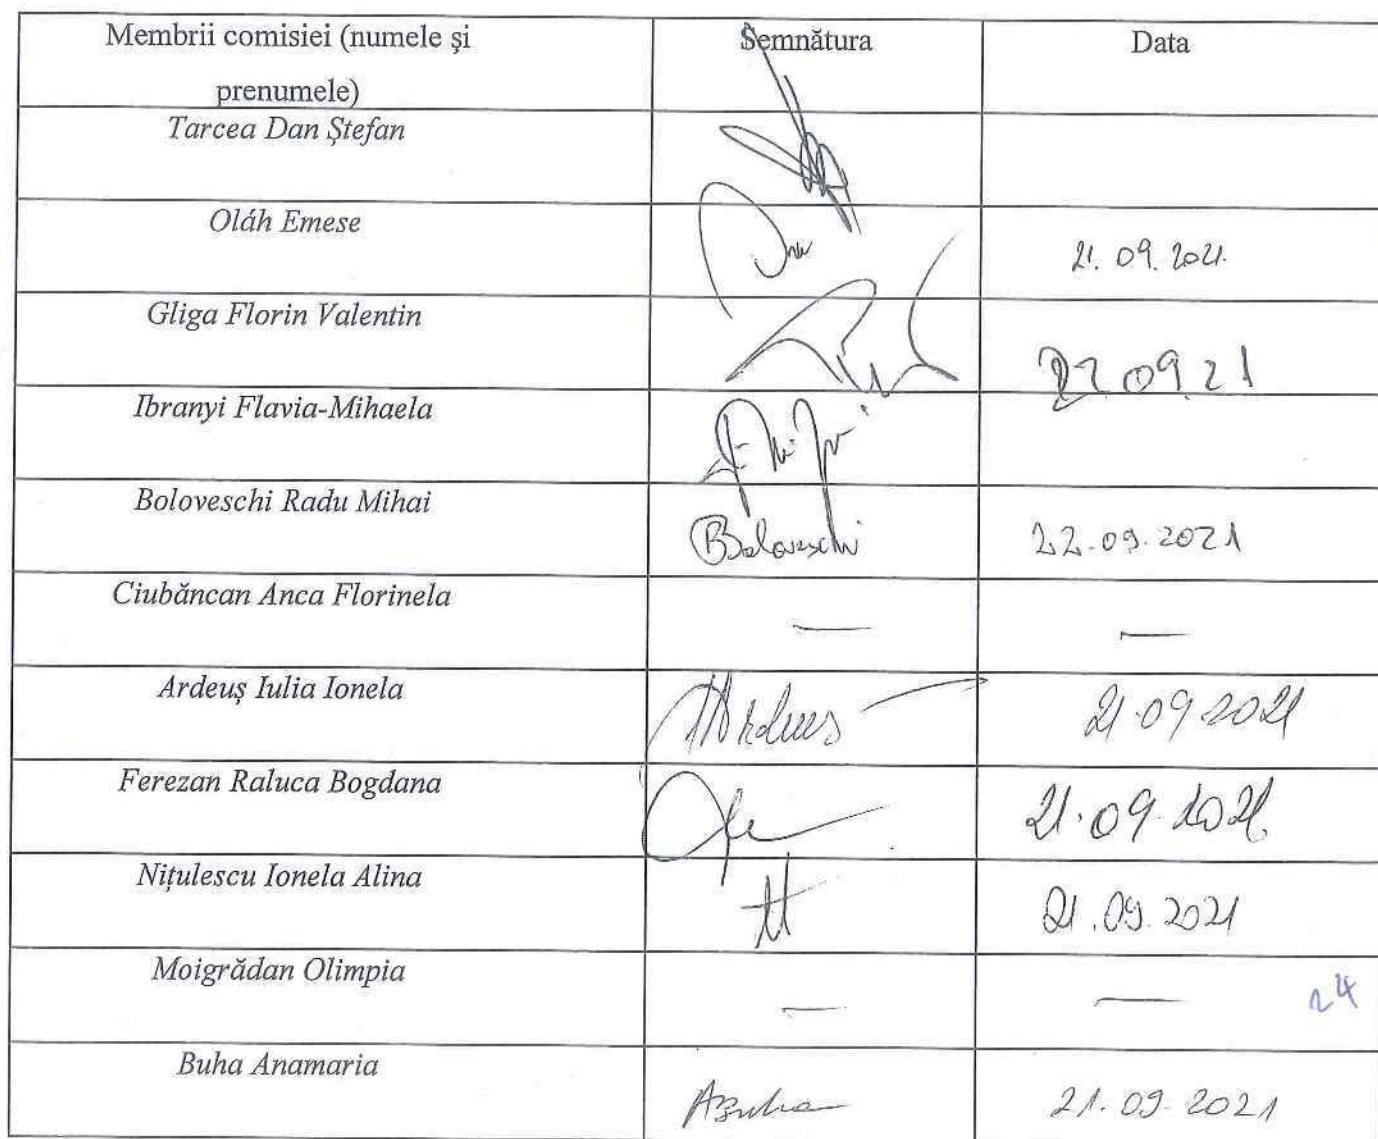 Membrii comisiei (numele și Semnătura Data
prenumele)
Tarcea Dan Ștefan
Oláh Emese 21.09.2021.
Gliga Florin Valentin 09.21
Ibranyi Flavia-Mihaela
Boloveschi Radu Mihai Boloveschi 22.09.2021
Ciubăncan Anca Florinela — —
Ardeuș Iulia Ionela Ardeus 21.09.2021
Ferezan Raluca Bogdana 21.09.2021.
Nițulescu Ionela Alina 21.09.2021
Moigrădan Olimpia — — 24
Buha Anamaria ABuha 21.09.2021